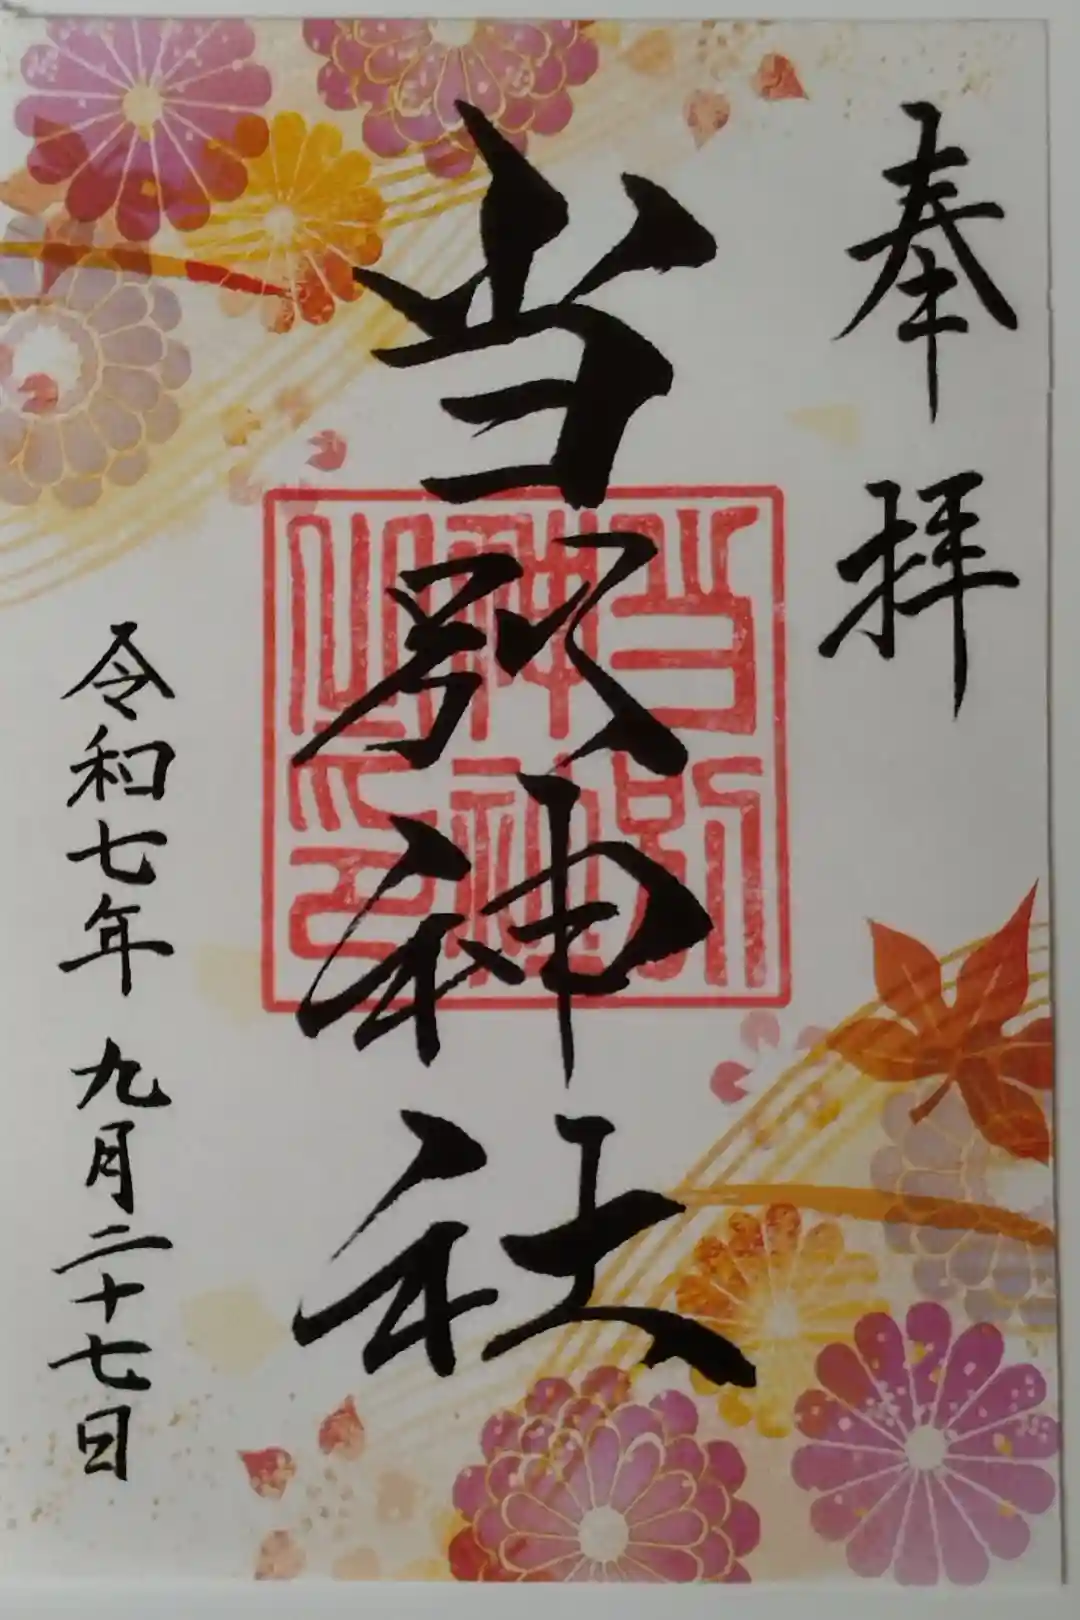 奉拝
当別神社
当別
神社
之印
令和七年 九月二十七日